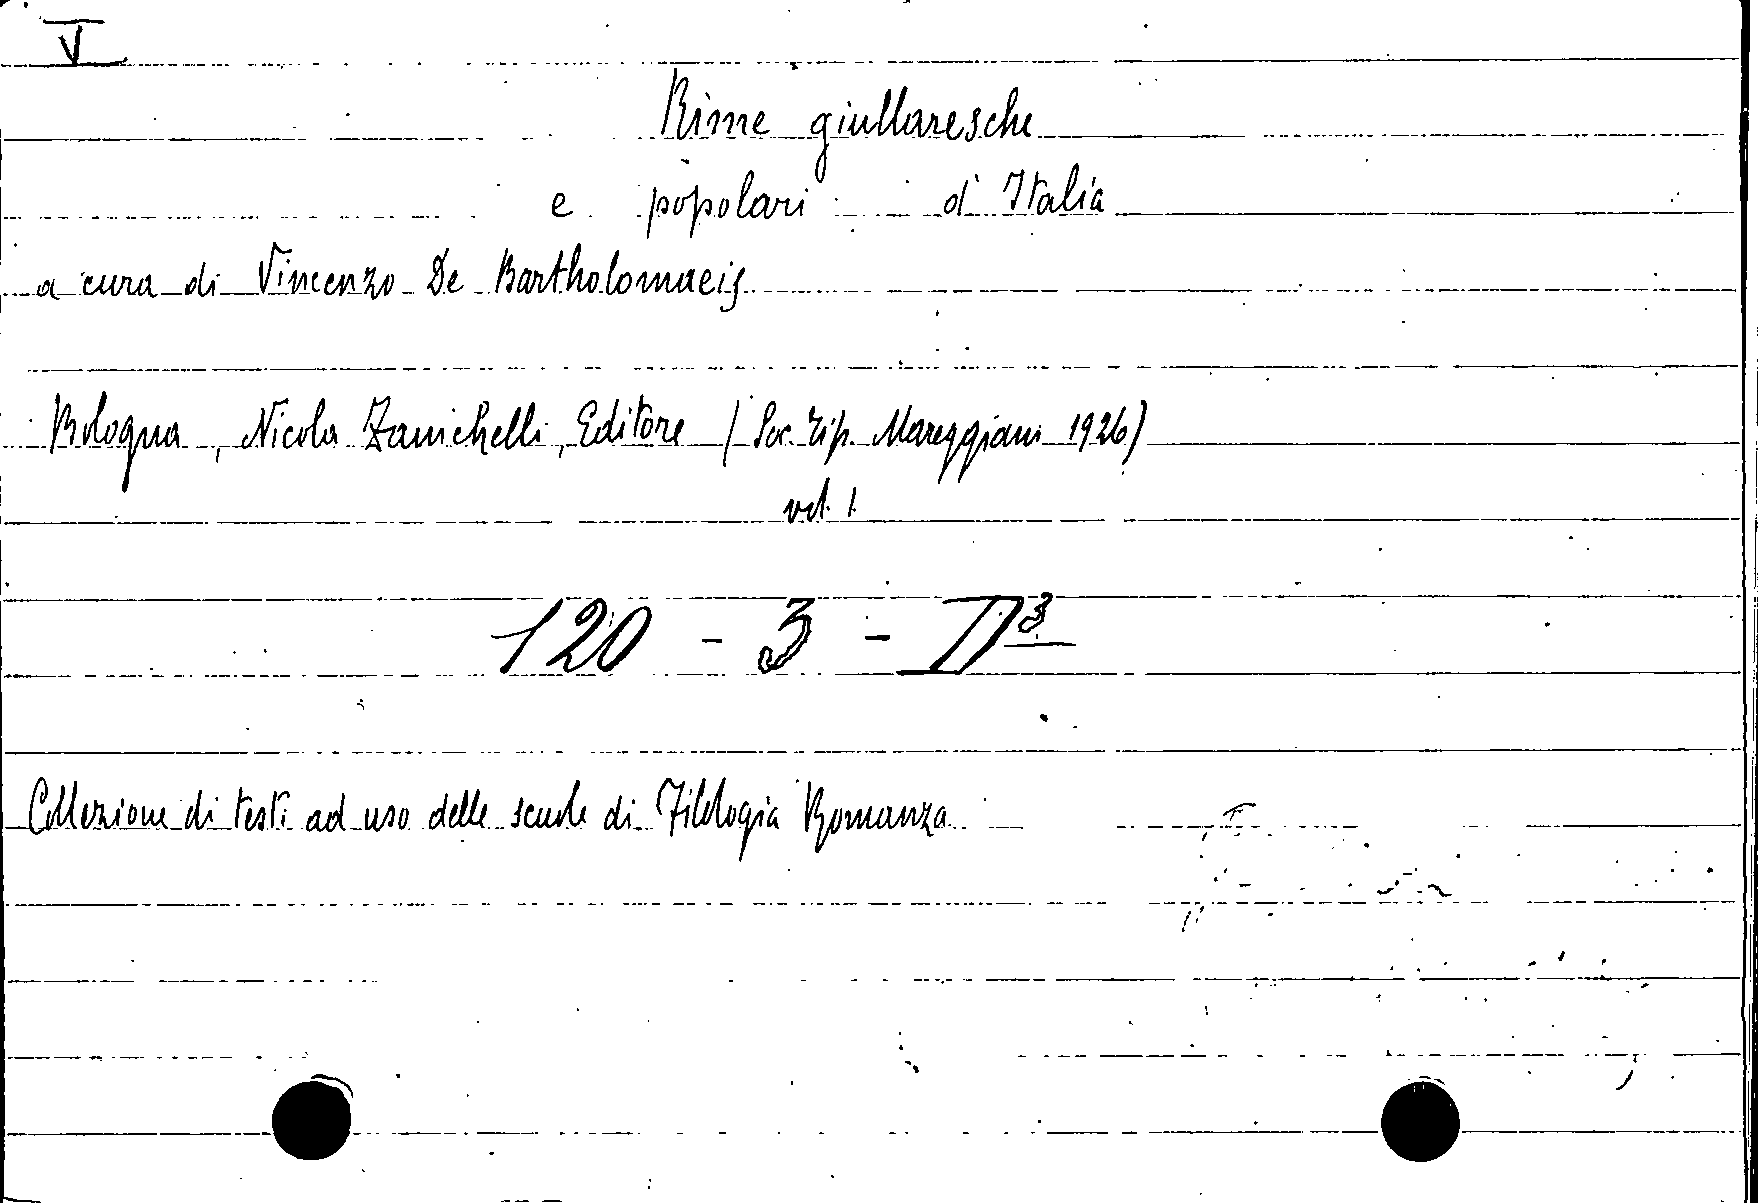 V
Rime giullaresche
e popolari d'Italia
a cura di Vincenzo De Bartholomaeis
Bologna, Nicola Zanichelli, Editore (Soc. Tip. Mareggiani 1926)
vol. 1.
120 - 3 - D³
Collezione di testi ad uso delle scuole di Filologia Romanza